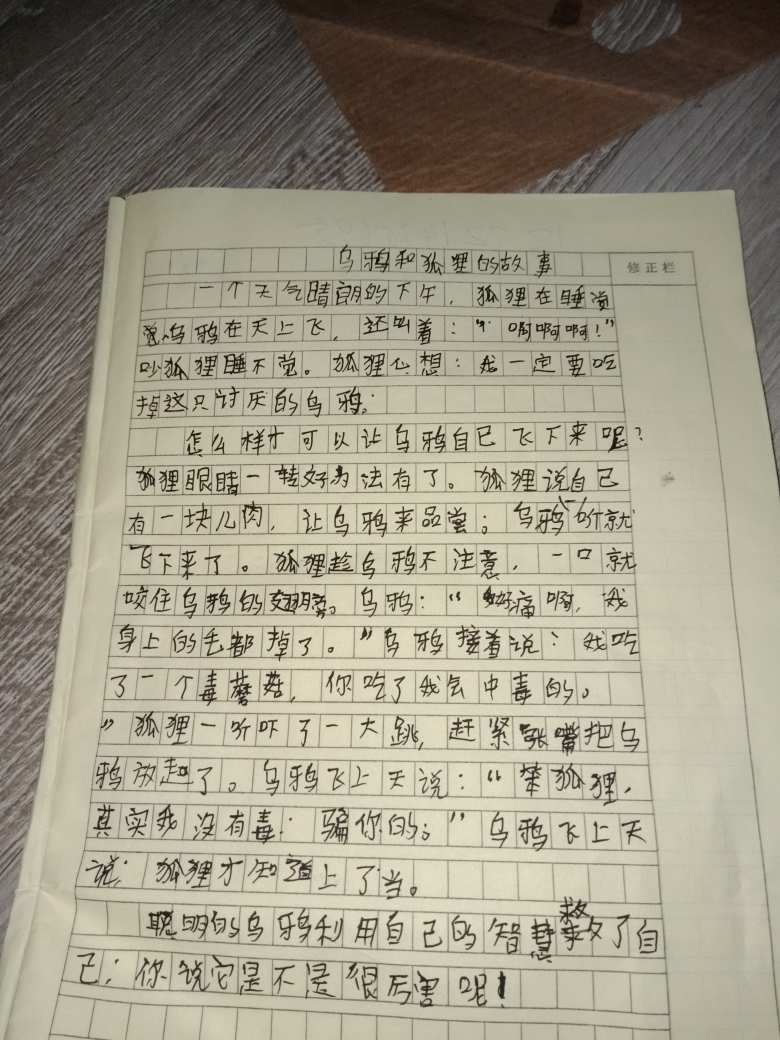 乌鸦和狐狸的故事
修正栏
一个天气晴朗的下午，狐狸在睡觉
觉，乌鸦在天上飞，还叫着：“啊啊啊！”
吵狐狸睡不觉。狐狸心想：我一定要吃
掉这只讨厌的乌鸦；
怎么样才可以让乌鸦自己飞下来呢？
狐狸眼睛一转好办法有了。狐狸说自己
有一块儿肉，让乌鸦来品尝；乌鸦一听就
飞下来了。狐狸趁乌鸦不注意，一口就
咬住乌鸦的翅膀。乌鸦：“好痛啊，我
身上的毛都掉了。”乌鸦接着说：我吃
了一个毒蘑菇，你吃了我会中毒的。
”狐狸一听吓了一大跳，赶紧张嘴把乌
鸦放了。乌鸦飞上天说：“笨狐狸，
其实我没有毒；骗你的；”乌鸦飞上天
说；狐狸才知道上了当。
聪明的乌鸦利用自己的智慧救了自
己；你说它是不是很厉害呢！